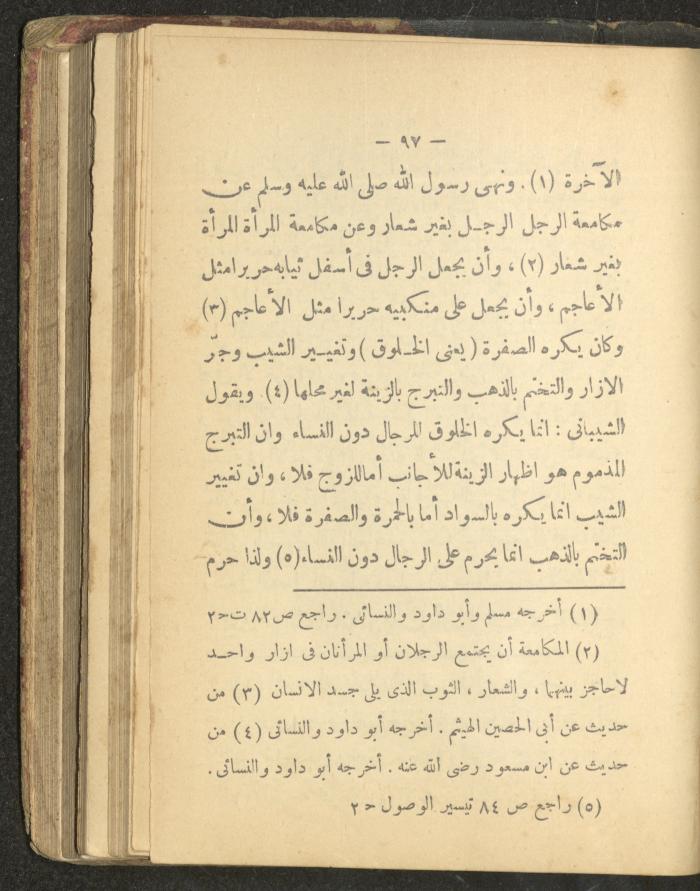 — ٩٧ —
الآخرة (١) . ونهى رسول الله صلى الله عليه وسلم عن
مكامعة الرجل الرجل بغير شعار وعن مكامعة المرأة المرأة
بغير شعار (٢) ، وأن يجعل الرجل فى أسفل ثيابه حريرا مثل
الأعاجم ، وأن يجعل على منكبيه حريرا مثل الأعاجم (٣)
وكان يكره الصفرة ( يعنى الخلوق ) وتغيير الشيب وجرّ
الازار والتختم بالذهب والتبرج بالزينة لغير محلها (٤) ويقول
الشيبانى : انما يكره الخلوق للرجال دون النساء وان التبرج
المذموم هو اظهار الزينة للأجانب أما للزوج فلا ، وان تغيير
الشيب انما يكره بالسواد أما بالحمرة والصفرة فلا ، وأن
التختّم بالذهب انما يحرم على الرجال دون النساء (٥) ولذا حرم
(١) أخرجه مسلم وأبو داود والنسائى . راجع ص ٨٢ ت ح ٢
(٢) المكامعة أن يجتمع الرجلان أو المرأتان فى ازار واحد
لاحاجز بينهما ، والشعار ، الثوب الذى يلى جسد الانسان (٣) من
حديث عن أبى الحصين الهيثم . أخرجه أبو داود والنسائى (٤) من
حديث عن ابن مسعود رضى الله عنه . أخرجه أبو داود والنسائى .
(٥) راجع ص ٨٤ تيسير الوصول ح ٢